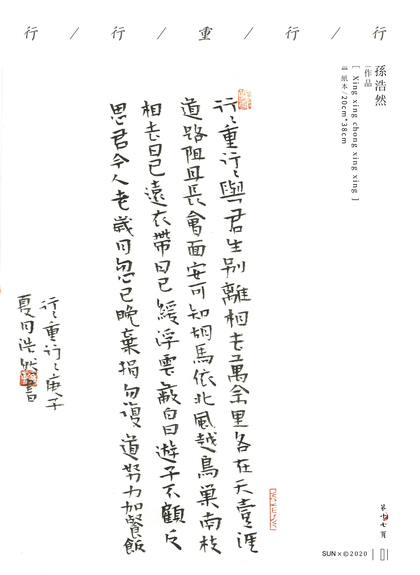 行/行/重/行/行
孫浩然
作品
[ Xing xing chong xing xing ]
紙本/20cm*38cm
行〻重行〻與君生別離相去萬余里各在天壹涯
道路阻且長會面安可知胡馬依北風越鳥巢南枝
相去日已遠衣帶日已緩浮雲蔽白日遊子不顧反
思君令人老歲月忽已晚棄捐勿復道努力加餐飯
行〻重行〻庚子
夏月浩然書
SUN×©2020
01